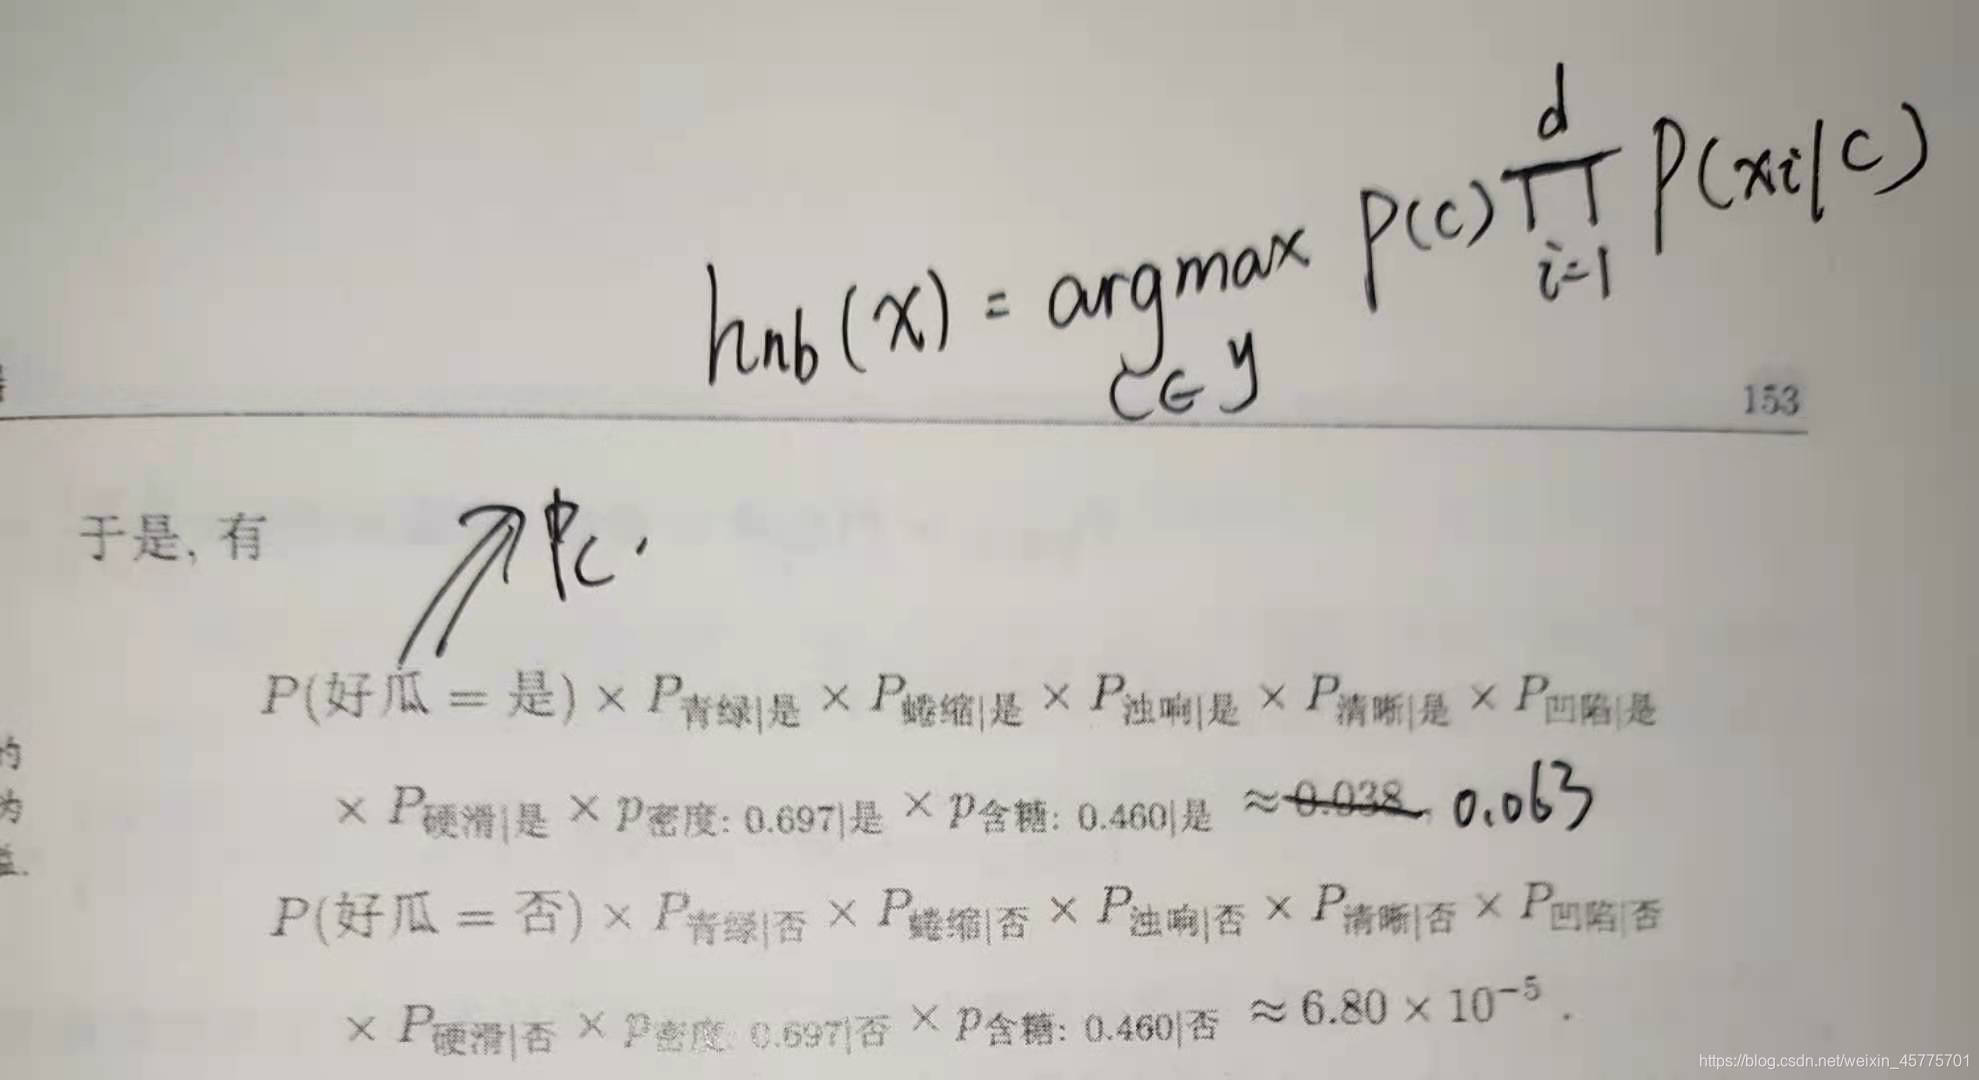 hnb(x) = argmax P(c) ∏ P(xi|c)
d
i=1
c∈y
153
于是, 有
Pc.
P(好瓜 = 是) × P青绿|是 × P蜷缩|是 × P浊响|是 × P清晰|是 × P凹陷|是
× P硬滑|是 × p密度: 0.697|是 × p含糖: 0.460|是 ≈ 0.038 0.063
P(好瓜 = 否) × P青绿|否 × P蜷缩|否 × P浊响|否 × P清晰|否 × P凹陷|否
× P硬滑|否 × p密度: 0.697|否 × p含糖: 0.460|否 ≈ 6.80 × 10⁻⁵ .
的
为
https://blog.csdn.net/weixin_45775701